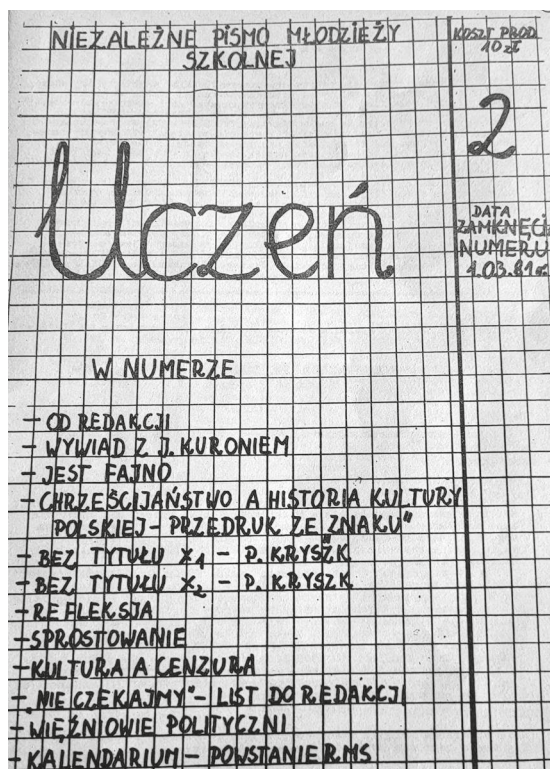 NIEZALEŻNE PISMO MŁODZIEŻY
SZKOLNEJ
KOSZT PROD
10 zł
2
Uczeń
DATA
ZAMKNĘCIA
NUMERU
1.03.81 r.
W NUMERZE
- OD REDAKCJI
- WYWIAD Z J. KURONIEM
- JEST FAJNO
- CHRZEŚCIJAŃSTWO A HISTORIA KULTURY
POLSKIEJ - PRZEDRUK ZE "ZNAKU"
- BEZ TYTUŁU X1 - P. KRYSZK
- BEZ TYTUŁU X2 - P. KRYSZK
- REFLEKSJA
- SPROSTOWANIE
- KULTURA A CENZURA
- „NIE CZEKAJMY" - LIST DO REDAKCJI
- WIĘŹNIOWIE POLITYCZNI
- KALENDARIUM - POWSTANIE R.MS